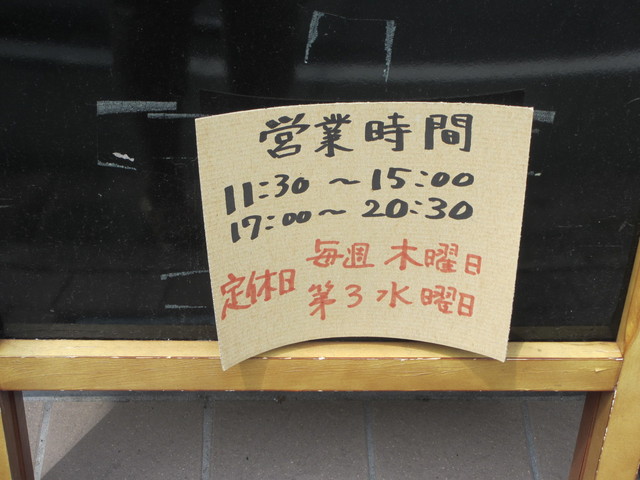 営業時間
11:30 ～ 15:00
17:00～ 20:30
定休日 毎週 木曜日
第3 水曜日